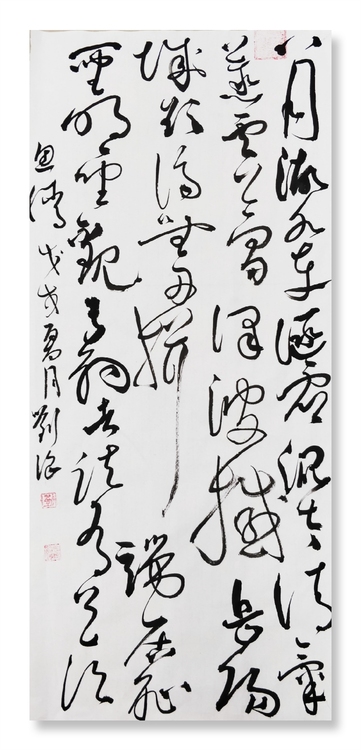 八月湖水平涵虛混太清氣
蒸雲夢澤波撼岳陽
城欲濟無舟楫端居恥
聖明坐觀垂釣者徒有羨
魚情戊戌夏月劉